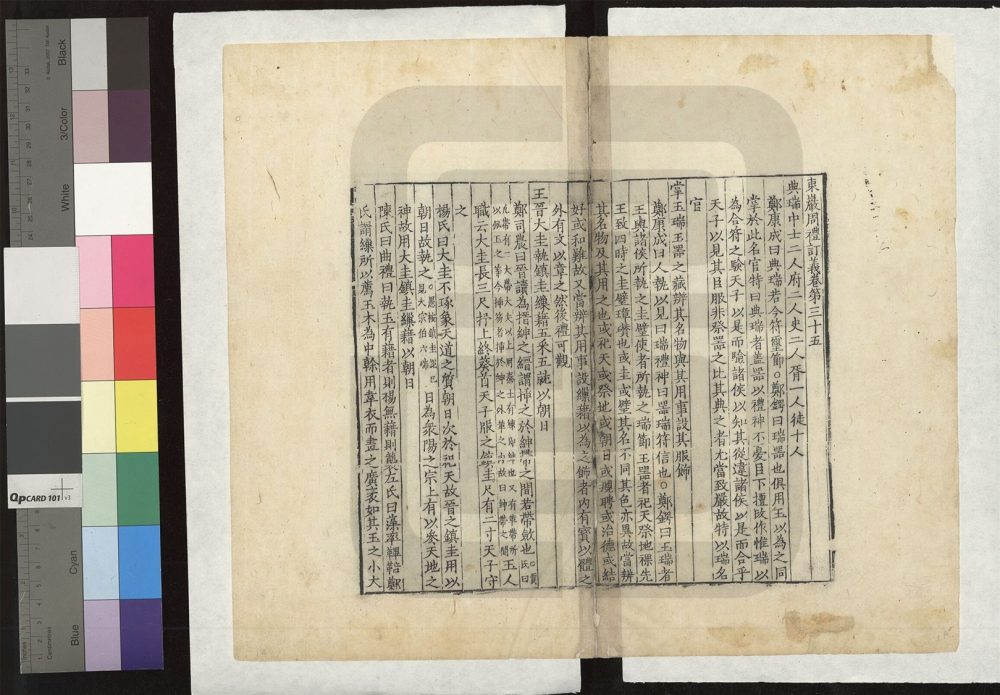 東巖周禮訂義卷第三十五
典瑞中士二人府二人史二人胥一人徒十人
鄭康成曰典瑞若今符璽節○鄭鍔曰瑞器也俱用玉以為之同
掌於此名官特曰典瑞者蓋器以禮神不憂臣下擅改作惟瑞以
為合符之驗天子以是而驗諸侯以知其從違諸侯以是而合乎
天子以見其臣服非祭器之比其典之者尤當致嚴故特以瑞名
官
掌玉瑞玉器之藏辨其名物與其用事設其服飾
鄭康成曰人執以見曰瑞禮神曰器瑞符信也○鄭鍔曰玉瑞者
王與諸侯所執之圭璧使者所執之瑞節玉器者祀天祭地祼先
王致四時之圭璧璋琮也或圭或璧其名不同其色亦異故當辨
其名物及其用之也或祀天或祭地或朝日或頫聘或治德或結
好或和難故又當辨其用事設繅藉以為之飾者內有寶以體之
外有文以章之然後禮可觀
王晉大圭執鎮圭繅藉五采五就以朝日
鄭司農曰晉讀為搢紳之縉謂插之於紳帶之間若帶劍也
職云大圭長三尺抒上終葵首天子服之鎮圭尺有二寸天子守
之
楊氏曰大圭不琢象天道之質朝日次於祀天故晉之鎮圭用以
朝日故執之 日為衆陽之宗上有以參天地之
神故用大圭鎮圭繅藉以朝日
陳氏曰曲禮曰執玉有藉者則裼無藉則襲左氏曰藻率鞞鞛鄭
氏謂繅所以薦玉木為中榦用韋衣而畫之廣袤如其玉之小大
QPCARD 101 v3
Black
3/Color
White
Cyan
Blue
Centimetres